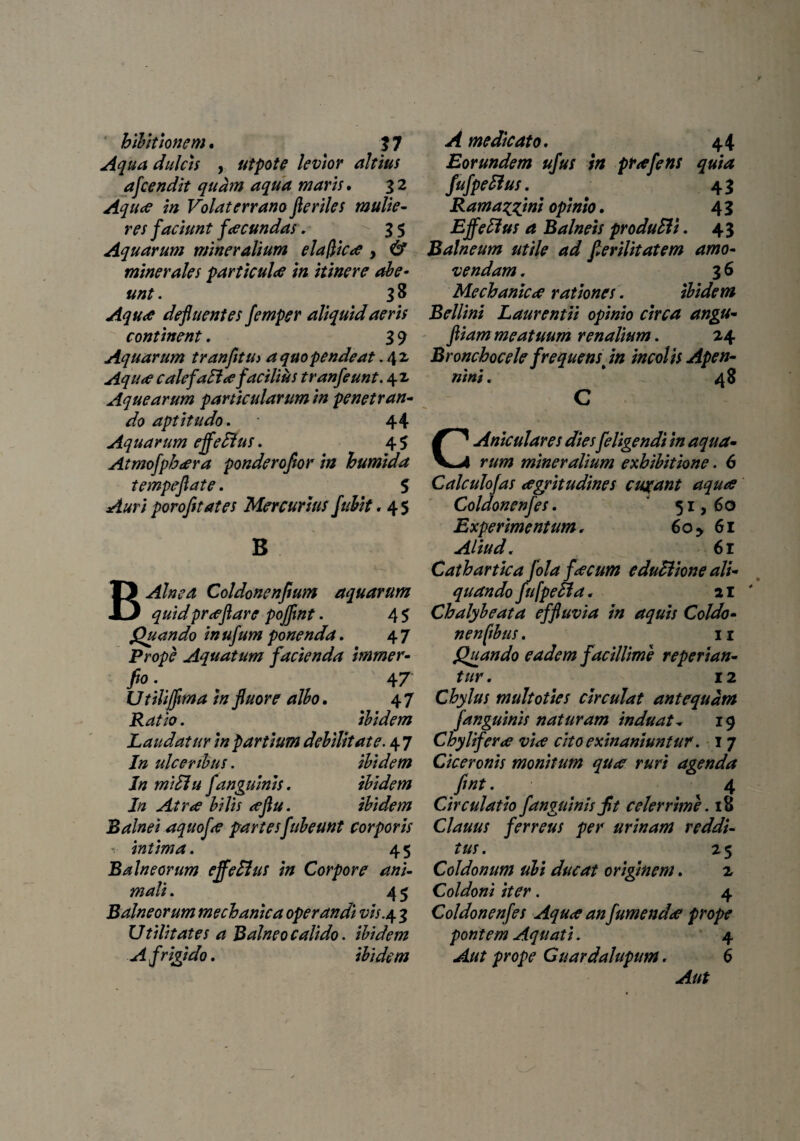 bibitionem. 37
Aqua dulcis, utpote levior altius
aſcendit quàm aqua maris. 32
Aquæ in Volaterrano ſteriles mulie-
res faciunt fæcundas. 35
Aquarum mineralium elaſticæ, &
minerales particulæ in itinere abe-
unt. 38
Aquæ defluentes ſemper aliquid aeris
continent. 39
Aquarum tranſitus a quo pendeat. 42
Aquæ calefactæ facilius tranſeunt. 42
Aquearum particularum in penetran-
do aptitudo. 44
Aquarum effectus. 45
Atmoſphæra ponderoſior in humida
tempeſtate. 5
Auri poroſitates Mercurius ſubit. 45
B
BAlnea Coldonenſium aquarum
quid præſtare poſſint. 45
Quando in uſum ponenda. 47
Propè Aquatum facienda immer-
ſio. 47
Utiliſſima in fluore albo. 47
Ratio. ibidem
Laudatur in partium debilitate. 47
In ulceribus. ibidem
In mictu ſanguinis. ibidem
In Atræ bilis æſtu. ibidem
Balnei aquoſæ partes ſubeunt corporis
intima. 45
Balneorum effectus in Corpore ani-
mali. 45
Balneorum mechanica operandi vis. 43
Utilitates a Balneo calido. ibidem
A frigido. ibidem
A medicato. 44
Eorundem uſus in præſens quia
ſuſpectus. 43
Ramazzini opinio. 43
Effectus a Balneis producti. 43
Balneum utile ad ſterilitatem amo-
vendam. 36
Mechanicæ rationes. ibidem
Bellini Laurentii opinio circa angu-
ſtiam meatuum renalium. 24
Bronchocele frequens in incolis Apen-
nini. 48
C
CAniculares dies ſeligendi in aqua-
rum mineralium exhibitione. 6
Calculoſas ægritudines curant aquæ
Coldonenſes. 51, 60
Experimentum. 60, 61
Aliud. 61
Cathartica ſola fæcum eductione ali-
quando ſuſpecta. 21
Chalybeata effluvia in aquis Coldo-
nenſibus. 11
Quando eadem facillimè reperian-
tur. 12
Chylus multoties circulat antequàm
ſanguinis naturam induat. 19
Chyliferæ viæ cito exinaniuntur. 17
Ciceronis monitum quæ ruri agenda
ſint. 4
Circulatio ſanguinis fit celerrimè. 18
Clauus ferreus per urinam reddi-
tus. 25
Coldonum ubi ducat originem. 2
Coldoni iter. 4
Coldonenſes Aquæ an ſumendæ prope
pontem Aquati. 4
Aut prope Guardalupum. 6
Aut